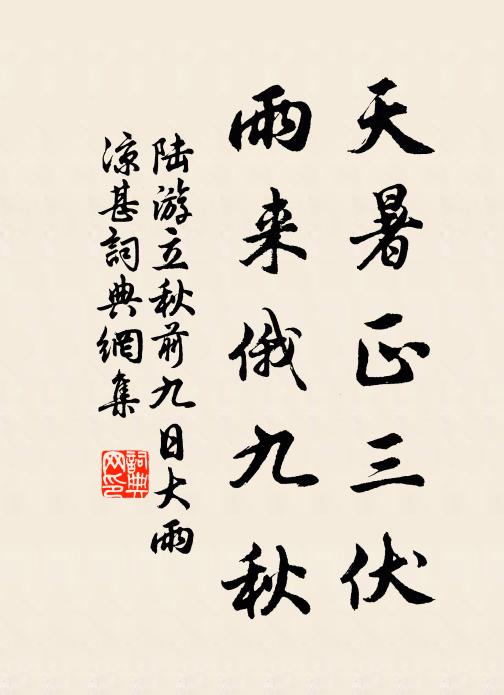 天暑正三伏
雨来俄九秋
陆游立秋前九日大雨
凉甚詞典網集
詞典网印